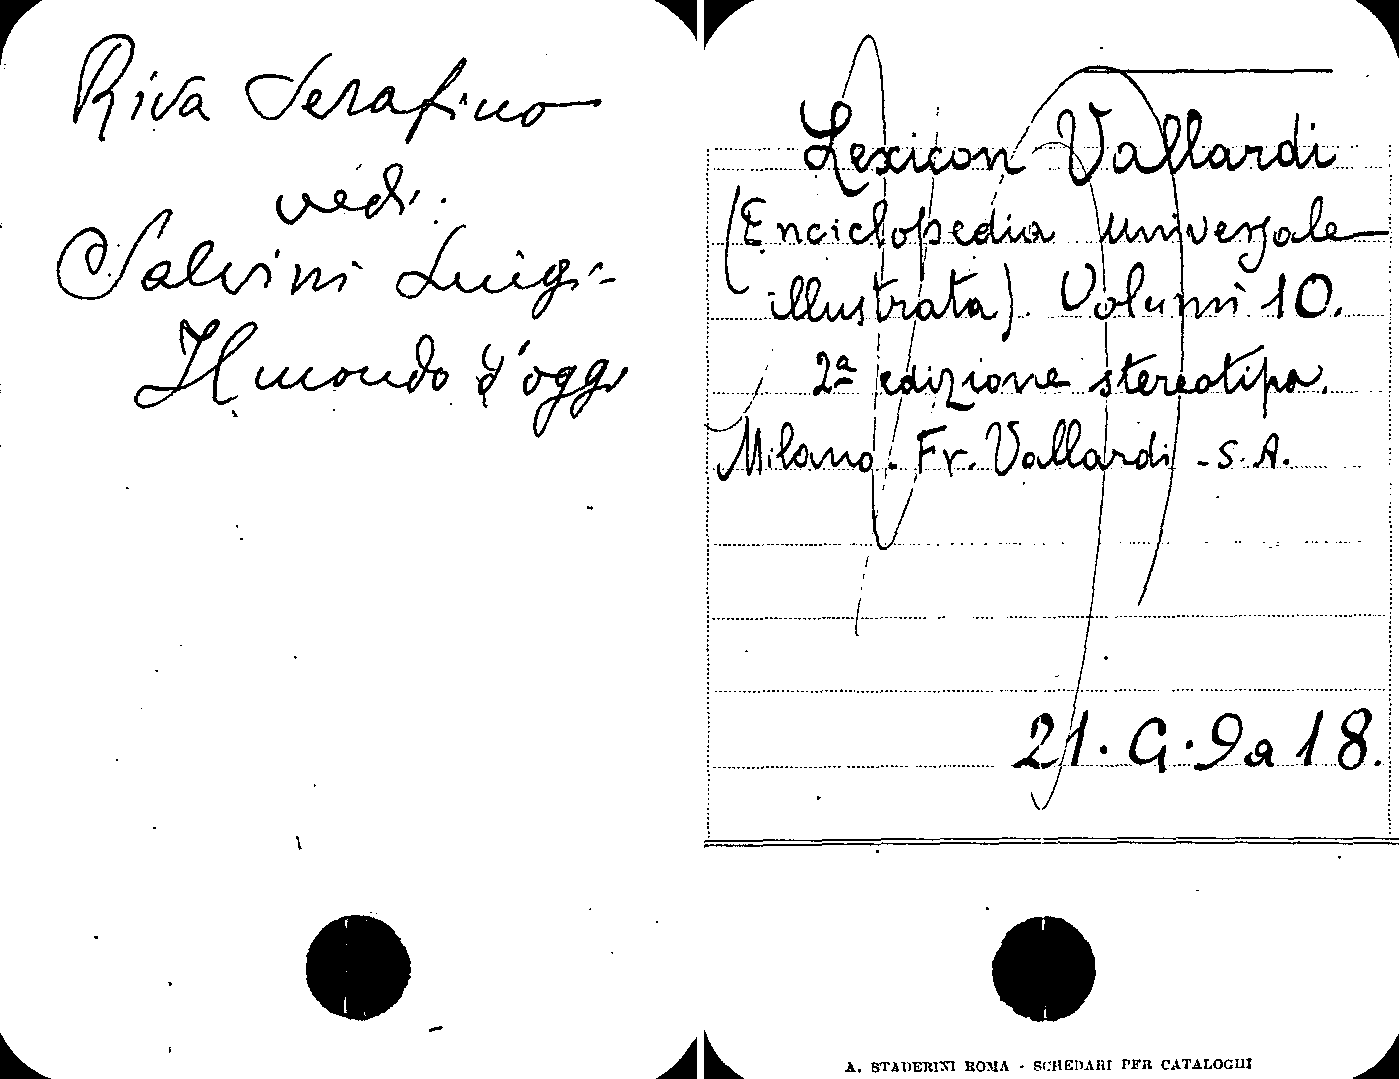 Riva Serafino
vedi:
Salvini Luigi-
Il mondo d'oggi
Lexicon Vallardi
(Enciclopedia universale
illustrata). Volumi 10.
2ª edizione stereotipa.
Milano. Fr. Vallardi - S. A.
21. G. 9 a 18.
A. STADERINI ROMA - SCHEDARI PER CATALOGHI